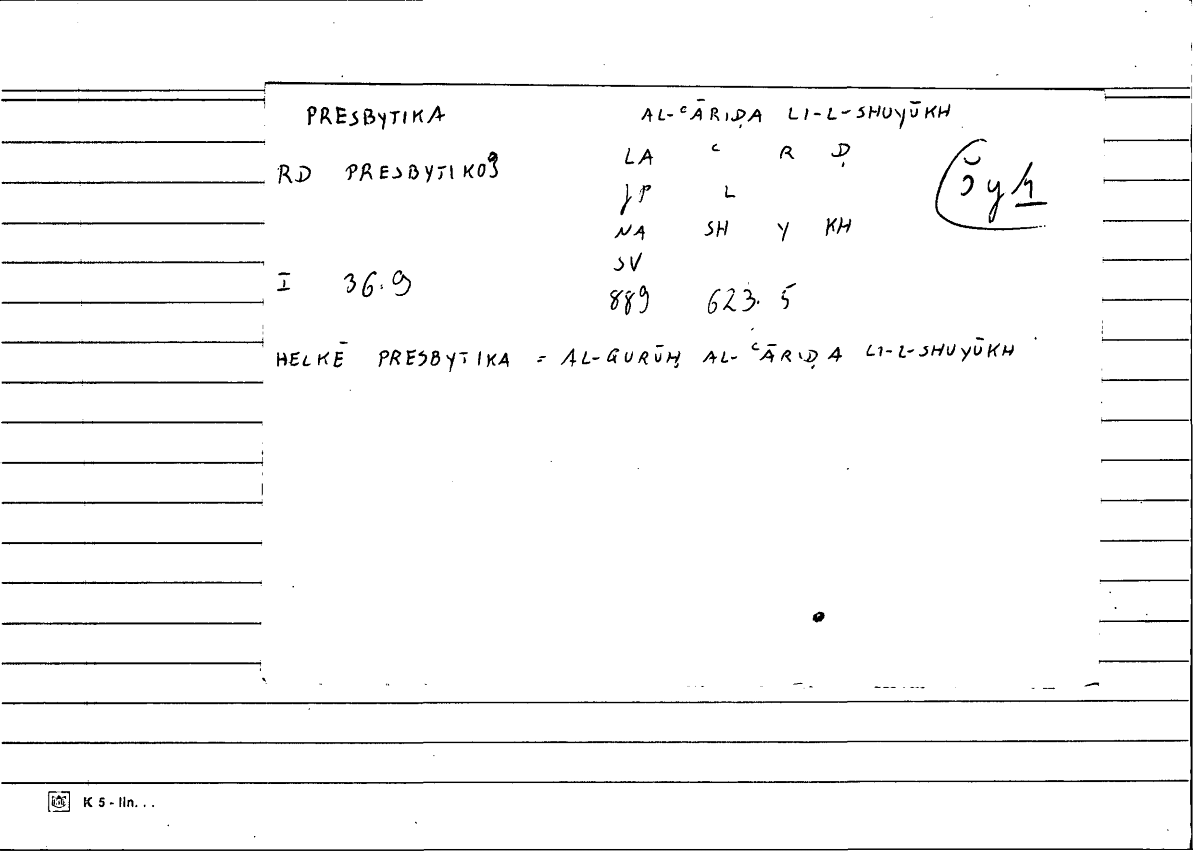 PRESBYTIKA AL-ᶜĀRIḌA LI-L-SHUYŪKH
RD PRESBYTIKOS LA ᶜ R Ḍ
JP L
NA SH Y KH
SV
I 36.9 889 623.5
HELKĒ PRESBYTIKA = AL-QURŪḤ AL-ᶜĀRIḌA LI-L-SHUYŪKH
K 5 - lin. . .